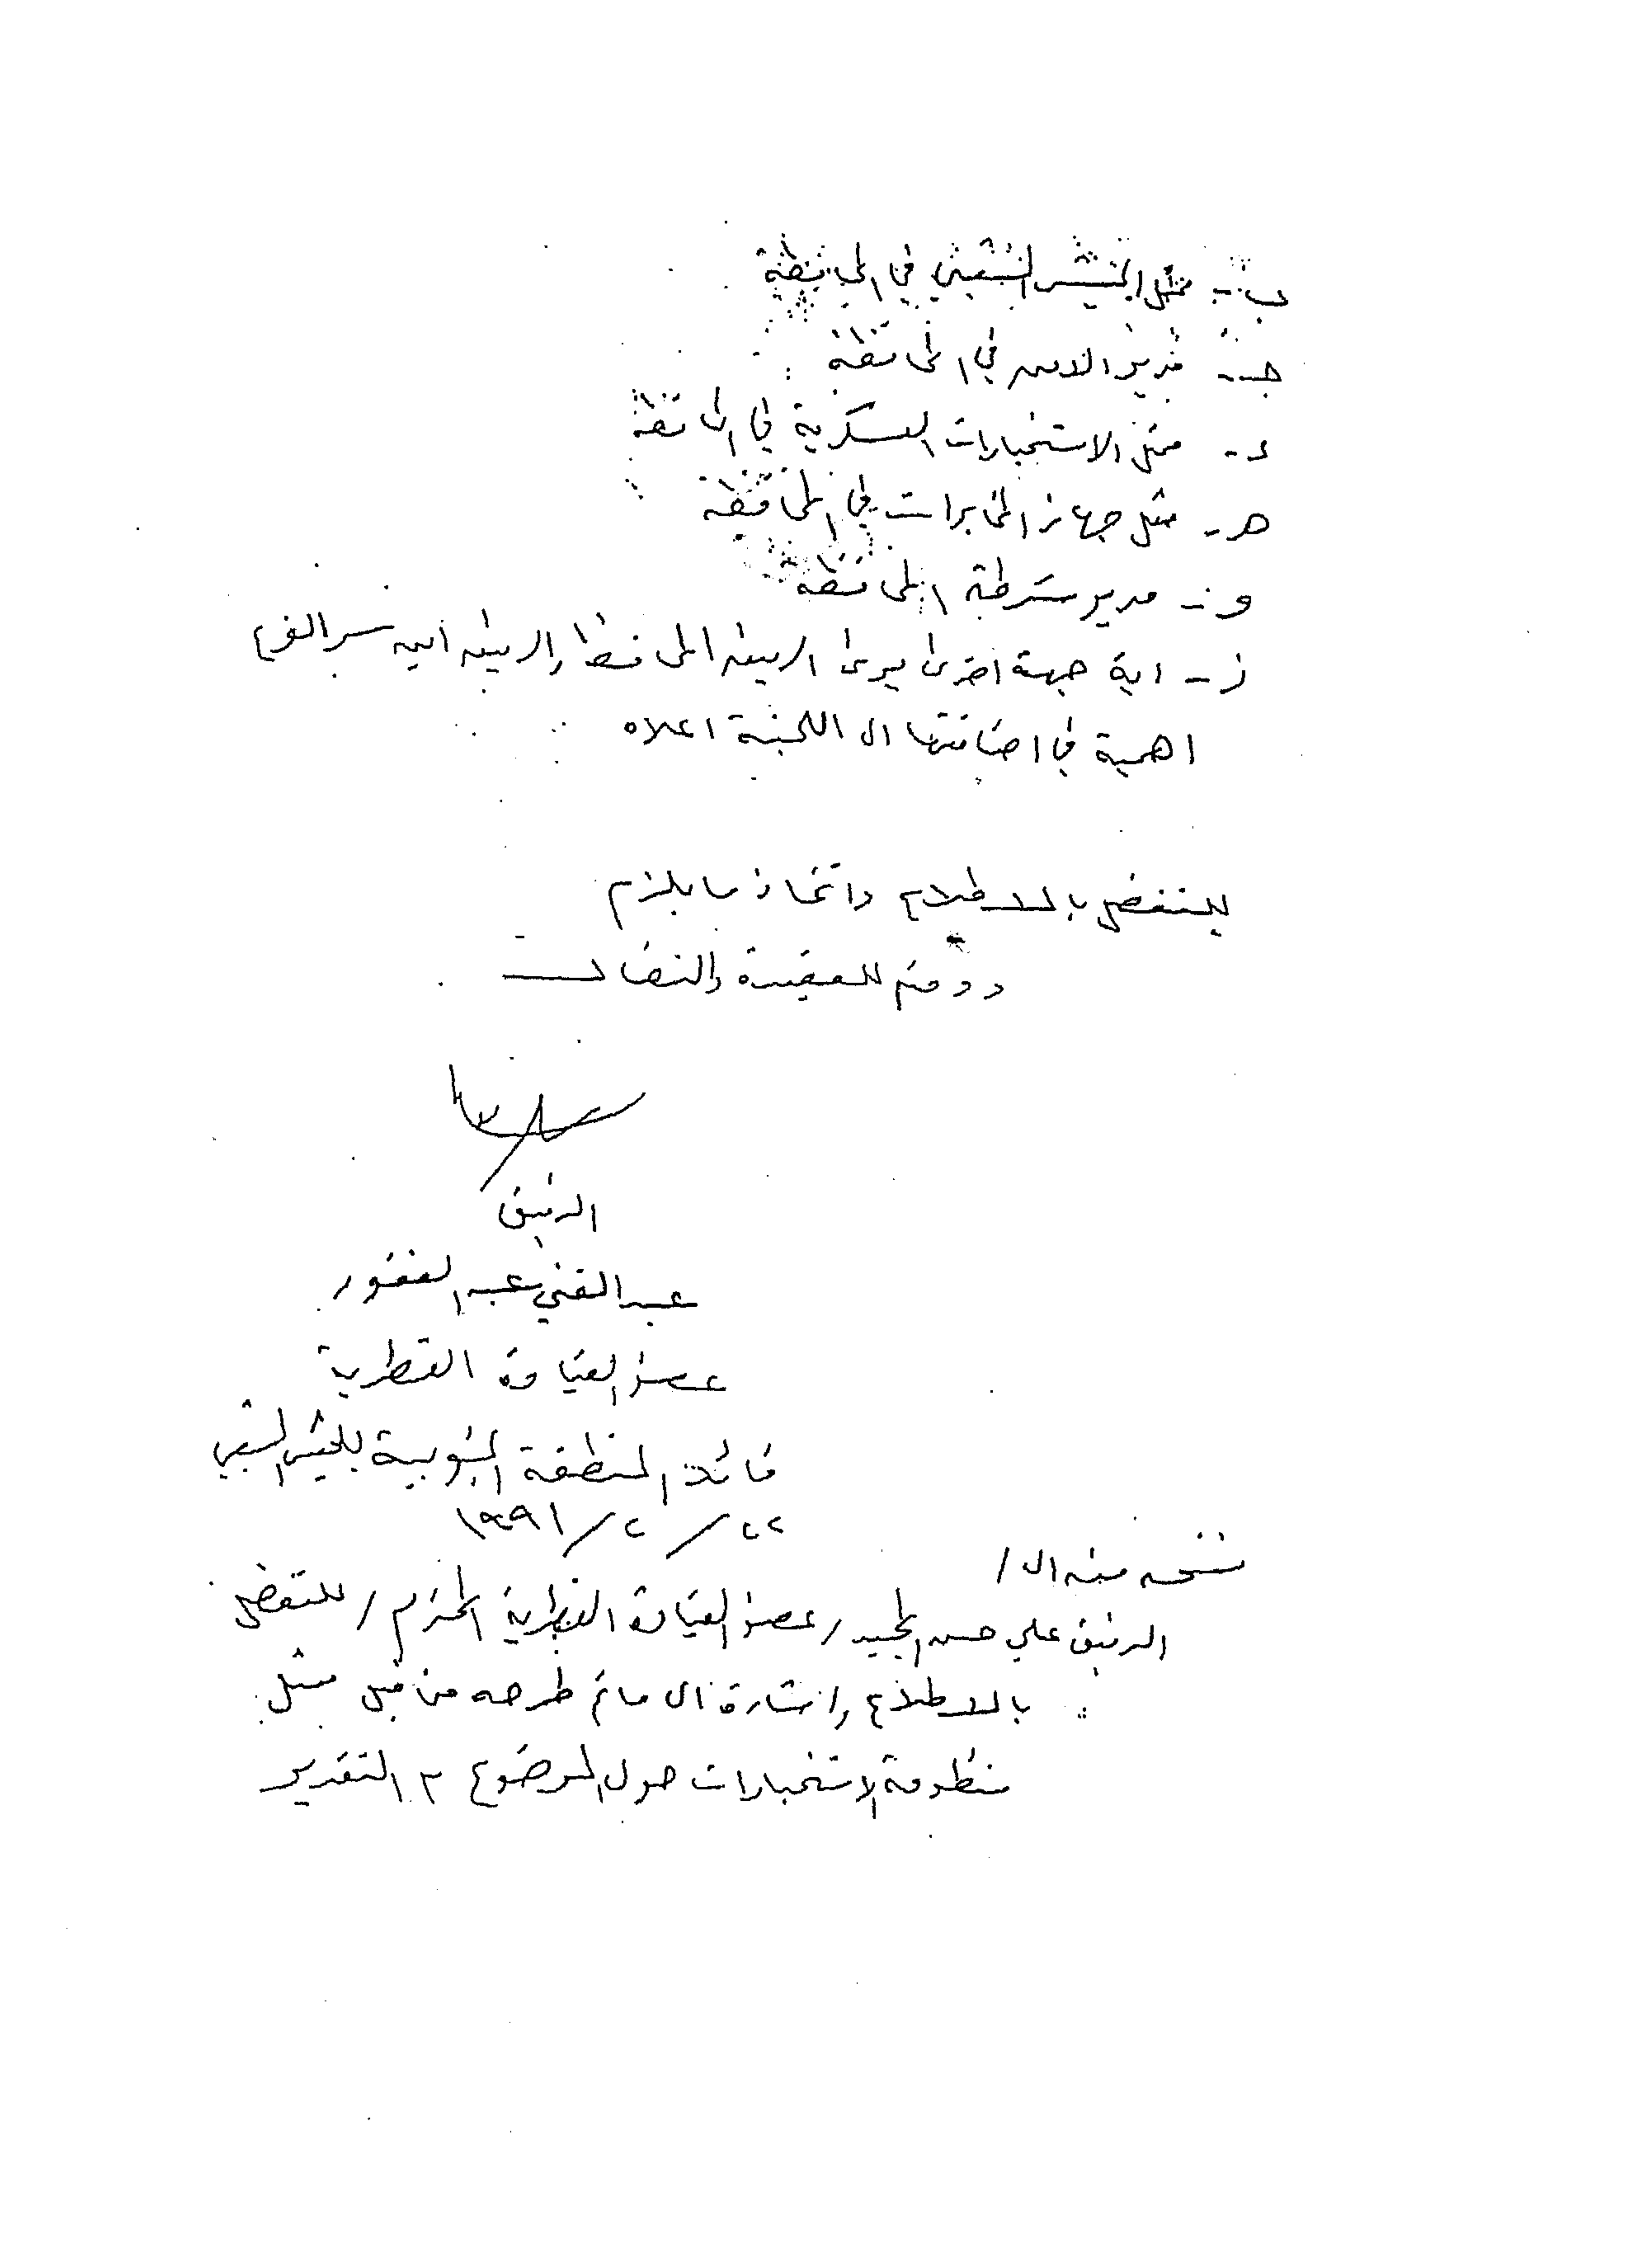 ب - ممثل الجيش الشعبي في المحافظة
جـ - مدير الامن في المحافظة
د - ممثل الاستخبارات العسكرية في المحافظة
هـ - ممثل جهاز المخابرات في المحافظة
و - مدير شرطة المحافظة
ز - اية جهة اخرى يرى الرفيق المحافظ والرفيق امين سر الفرع
اهمية في اضافتها الى اللجنة اعلاه
للتفضل بالاطلاع واتخاذ ما يلزم
ودمتم للعقيدة والنضال
الرفيق
عبد الغني عبد الغفور
عضو القيادة القطرية
قائد المنطقة الجنوبية للجيش الشعبي
٢٢ / ٢ / ١٩٩١
نسخه منه الى /
الرفيق علي حسن المجيد / عضو القيادة القطرية المحترم / للتفضل
بالاطلاع واشارة الى ماتم طرحه من قبل ممثل
منظومة الاستخبارات حول الموضوع مع التقدير